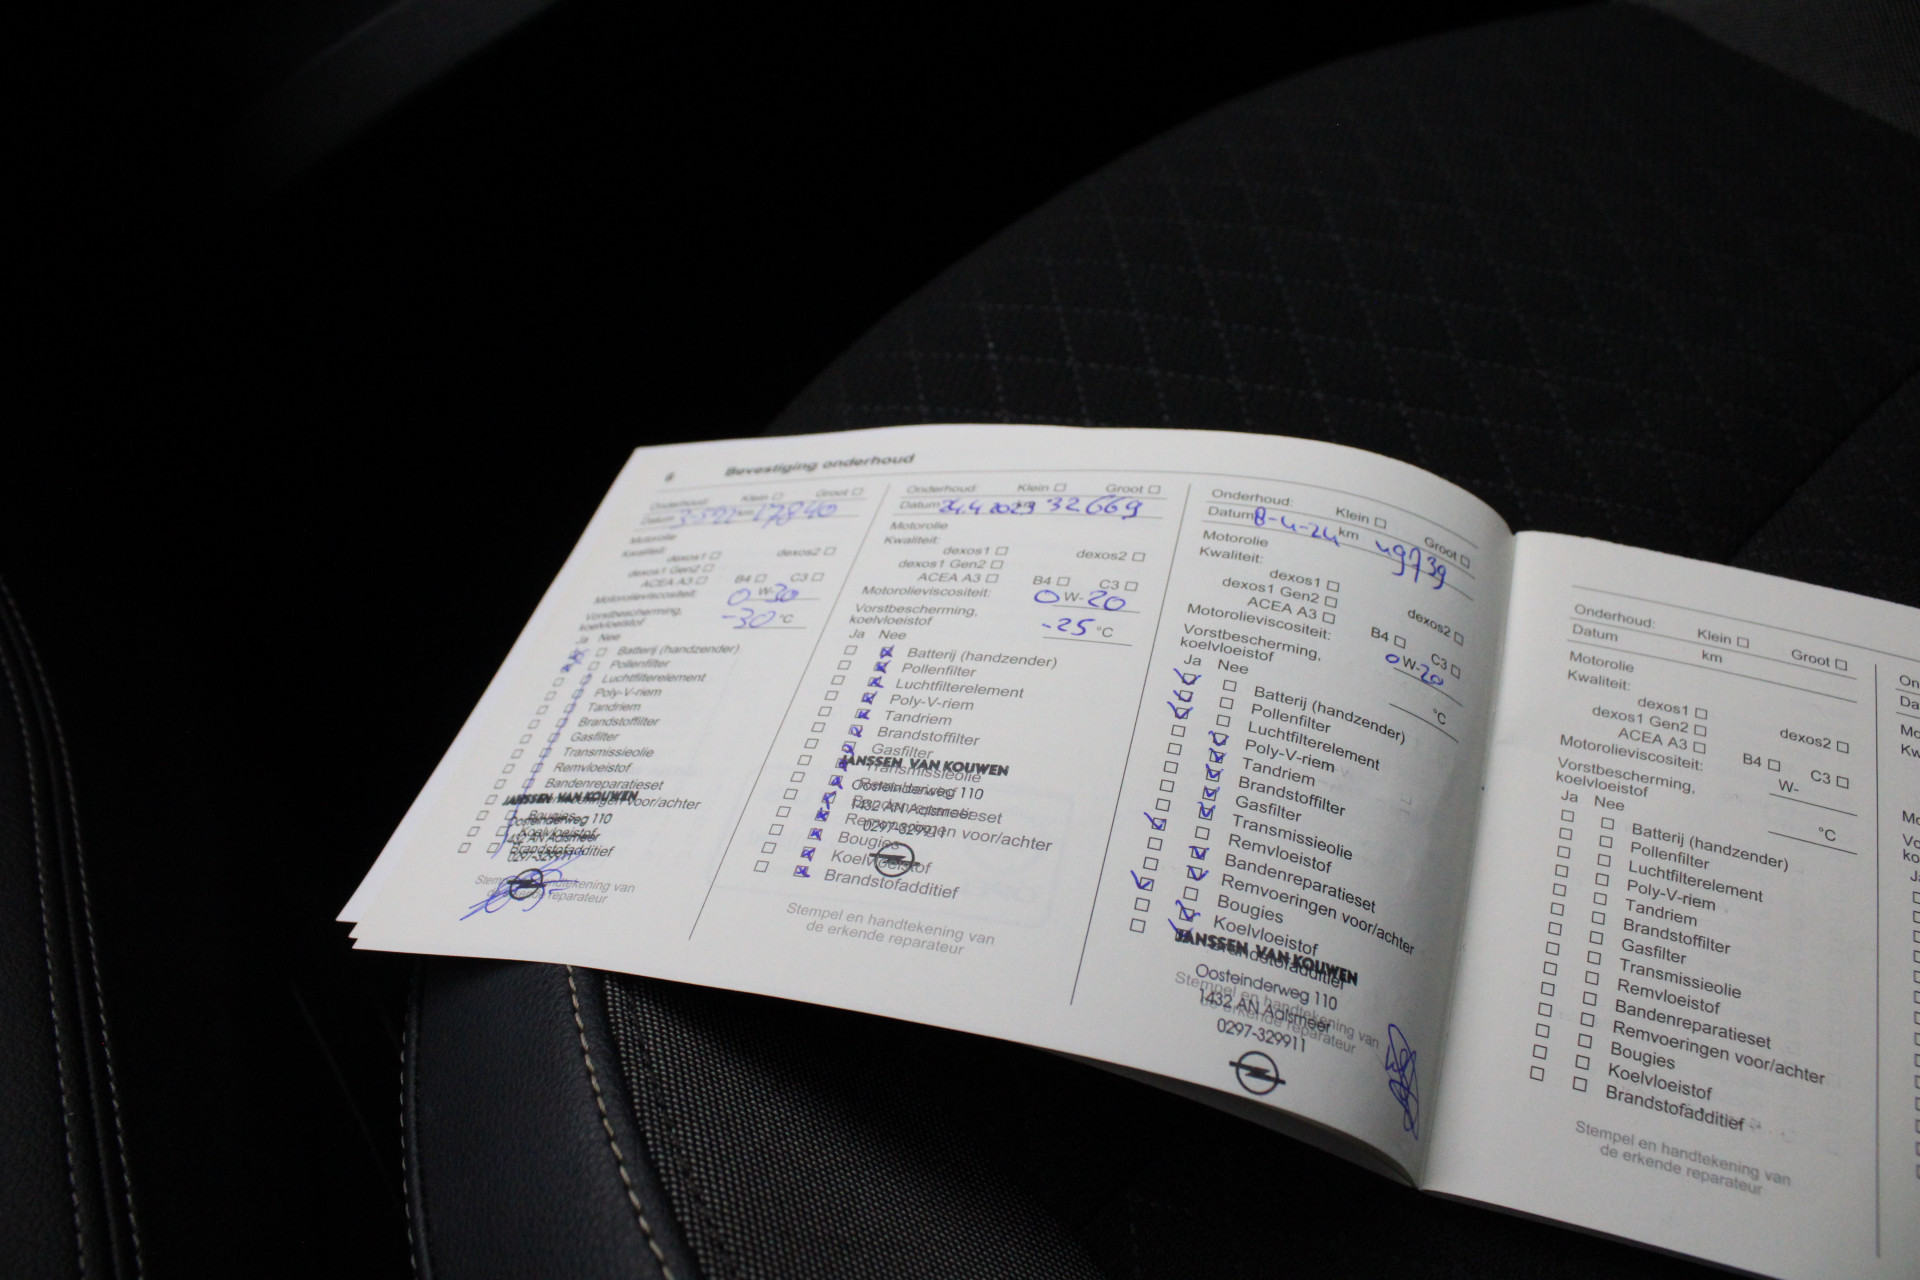 6 Bevestiging onderhoud
Onderhoud: Klein Groot
Datum 3-5-22 km 17840
Motorolie
Kwaliteit:
dexos1 dexos2
dexos1 Gen2
ACEA A3 B4 C3
Motorolieviscositeit: 0 W-30
Vorstbescherming,
koelvloeistof -30 °C
Ja Nee
Batterij (handzender)
Pollenfilter
Luchtfilterelement
Poly-V-riem
Tandriem
Brandstoffilter
Gasfilter
Transmissieolie
Remvloeistof
Bandenreparatieset
Remvoeringen voor/achter
Bougies
Koelvloeistof
Brandstofadditief
JANSSEN VAN KOUWEN
Oosteinderweg 110
1432 AN Aalsmeer
0297-329911
Stempel en handtekening van
de erkende reparateur
Onderhoud: Klein Groot
Datum 24.4.2023 km 32669
Motorolie
Kwaliteit:
dexos1 dexos2
dexos1 Gen2
ACEA A3 B4 C3
Motorolieviscositeit: 0 W-20
Vorstbescherming,
koelvloeistof -25 °C
Ja Nee
Batterij (handzender)
Pollenfilter
Luchtfilterelement
Poly-V-riem
Tandriem
Brandstoffilter
Gasfilter
Transmissieolie
Remvloeistof
Bandenreparatieset
Remvoeringen voor/achter
Bougies
Koelvloeistof
Brandstofadditief
JANSSEN VAN KOUWEN
Oosteinderweg 110
1432 AN Aalsmeer
0297-329911
Stempel en handtekening van
de erkende reparateur
Onderhoud: Klein Groot
Datum 8-4-24 km 49739
Motorolie
Kwaliteit:
dexos1 dexos2
dexos1 Gen2
ACEA A3 B4 C3
Motorolieviscositeit: 0 W-20
Vorstbescherming,
koelvloeistof °C
Ja Nee
Batterij (handzender)
Pollenfilter
Luchtfilterelement
Poly-V-riem
Tandriem
Brandstoffilter
Gasfilter
Transmissieolie
Remvloeistof
Bandenreparatieset
Remvoeringen voor/achter
Bougies
Koelvloeistof
Brandstofadditief
JANSSEN VAN KOUWEN
Oosteinderweg 110
1432 AN Aalsmeer
0297-329911
Stempel en handtekening van
de erkende reparateur
Onderhoud: Klein Groot
Datum km
Motorolie
Kwaliteit:
dexos1 dexos2
dexos1 Gen2
ACEA A3 B4 C3
Motorolieviscositeit: W-
Vorstbescherming,
koelvloeistof °C
Ja Nee
Batterij (handzender)
Pollenfilter
Luchtfilterelement
Poly-V-riem
Tandriem
Brandstoffilter
Gasfilter
Transmissieolie
Remvloeistof
Bandenreparatieset
Remvoeringen voor/achter
Bougies
Koelvloeistof
Brandstofadditief
Stempel en handtekening van
de erkende reparateur